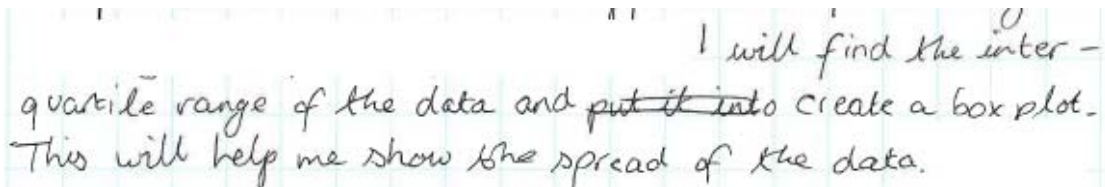 I will find the inter -
quartile range of the data and put it into create a box plot.
This will help me show the spread of the data.